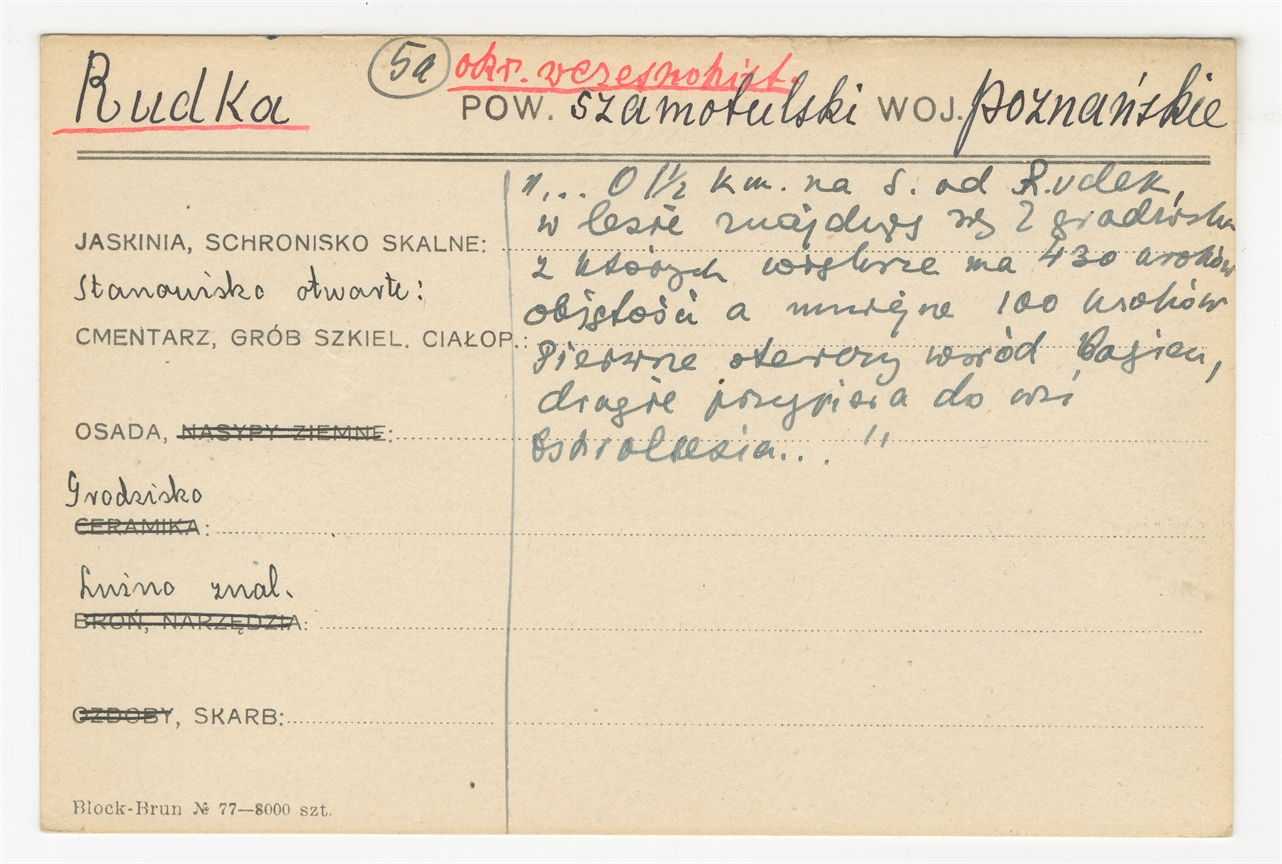 Rudka
5a okr. wczesnohist.
POW. szamotulski WOJ. poznańskie
JASKINIA, SCHRONISKO SKALNE:
Stanowisko otwarte:
CMENTARZ, GRÓB SZKIEL. CIAŁOP.:
OSADA, NASYPY ZIEMNE:
Grodzisko
CERAMIKA:
Luźno znal.
BROŃ, NARZĘDZIA:
OZDOBY, SKARB:
Block-Brun № 77—8000 szt.
"... O 1½ km. na S. od Rudek,
w lesie znajdują się 2 grodziska
z których większe ma 430 kroków
objętości a mniejsze 100 kroków
Pierwsze otwarty wśród bagien,
drugie przypiera do wsi
"